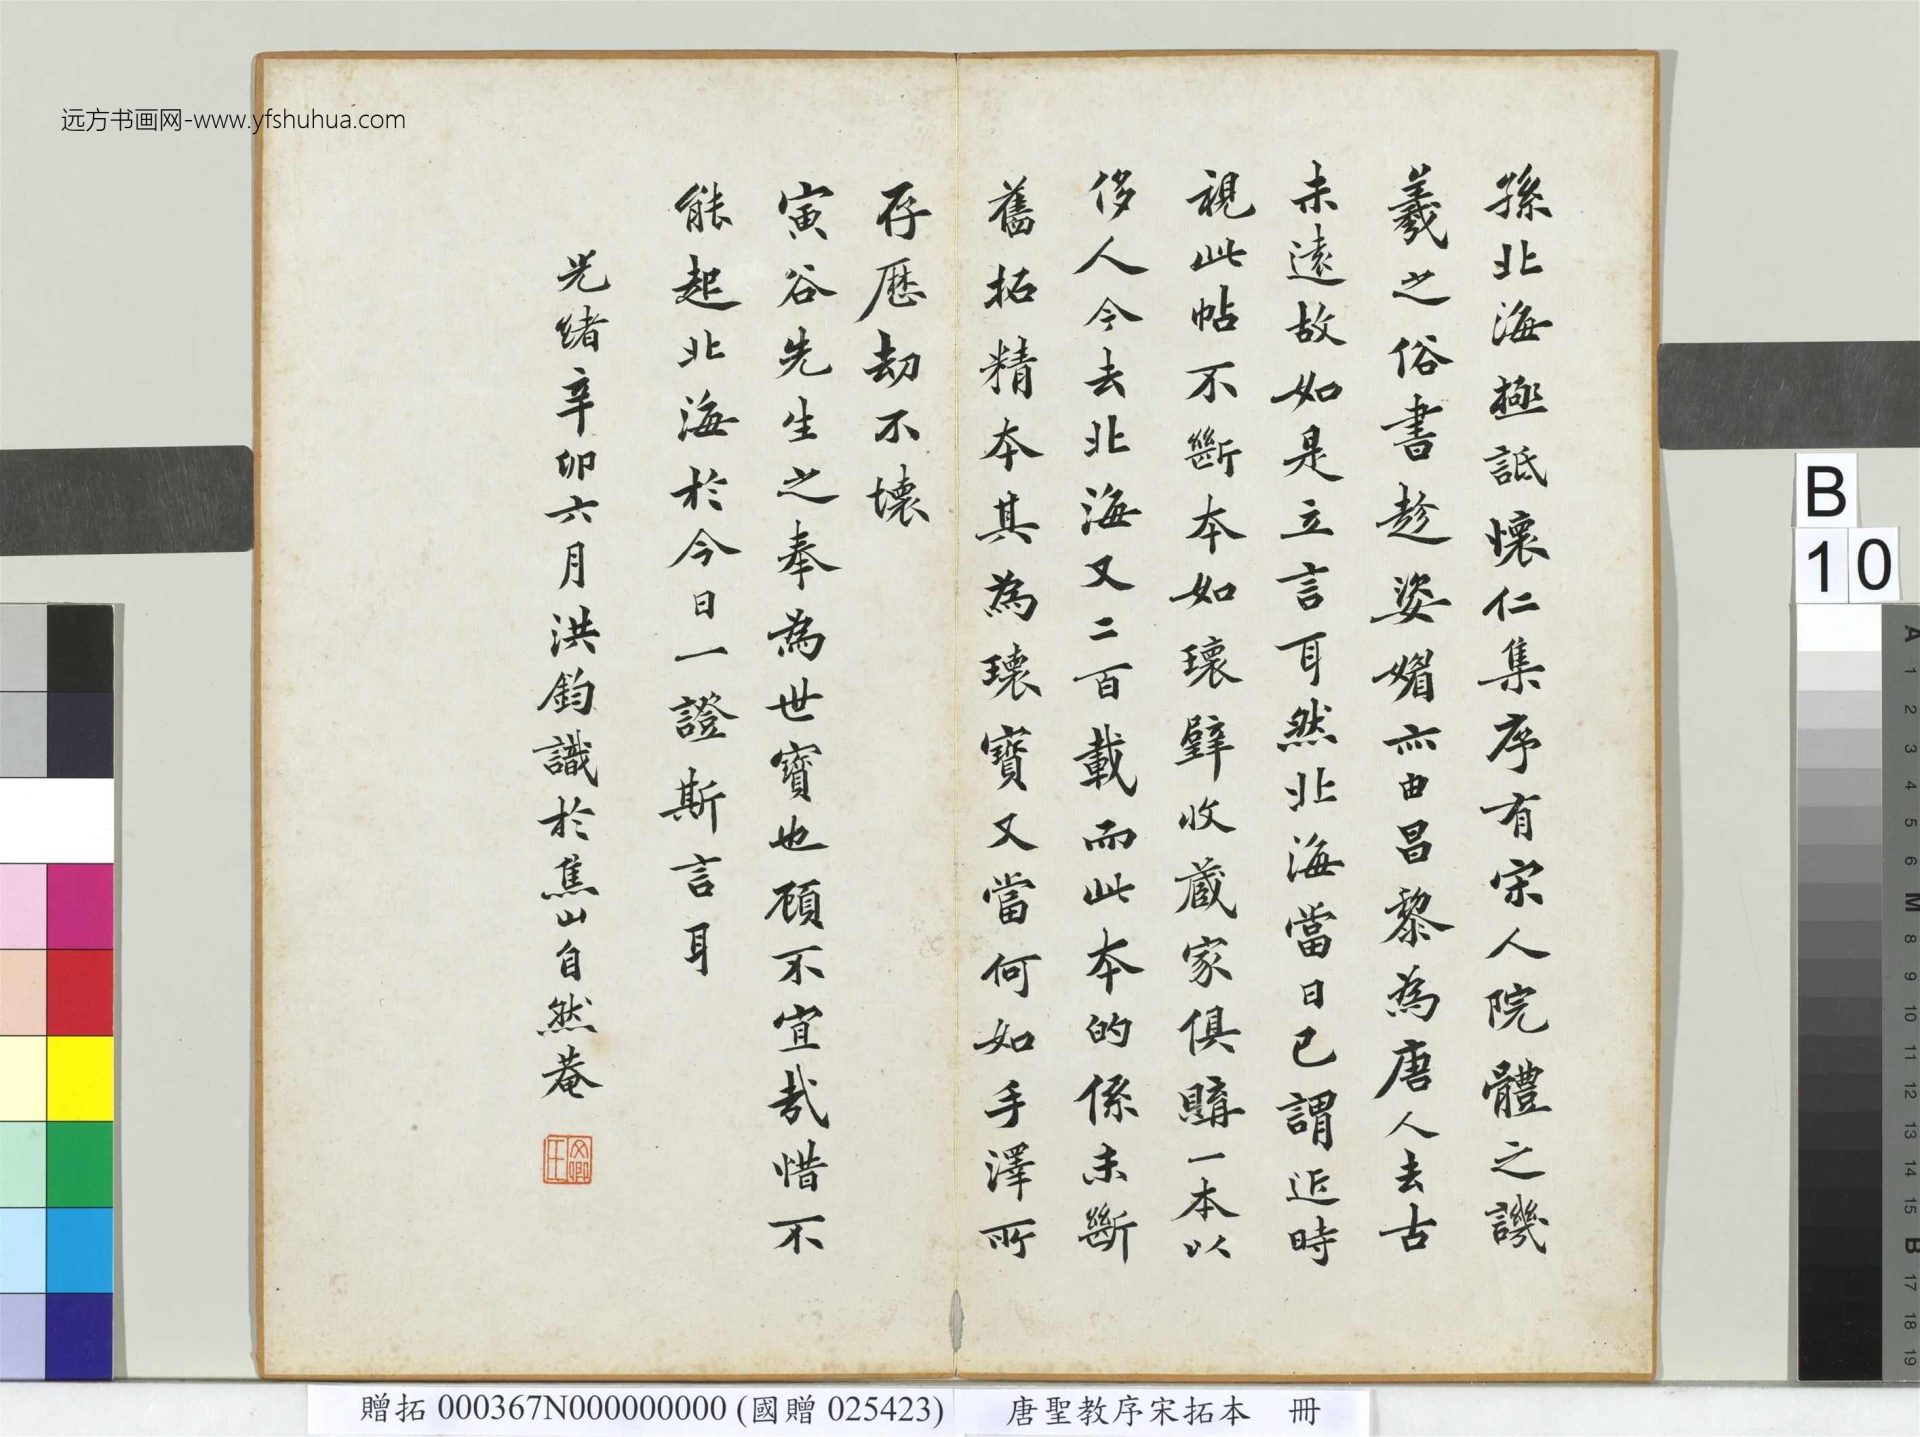 远方书画网-www.yfshuhua.com
孫北海極詆懷仁集序有宋人院體之譏
羲之俗書趁姿媚亦由昌黎為唐人去古
未遠故如是立言耳然北海當日已謂近時
視此帖不斷本如瓌璧收藏家俱購一本以
侈人今去北海又二百載而此本的係未斷
舊拓精本其為瓌寶又當何如手澤所
存歷劫不壞
寅谷先生之奉為世寶也顧不宜哉惜不
能起北海於今日一證斯言耳
光緒辛卯六月洪鈞識於焦山自然菴
B
10
A 1 2 3 4 5 6 M 8 9 10 11 12 13 14 15 B 17 18 19
贈拓 000367N000000000 (國贈 025423)
唐聖教序宋拓本 冊